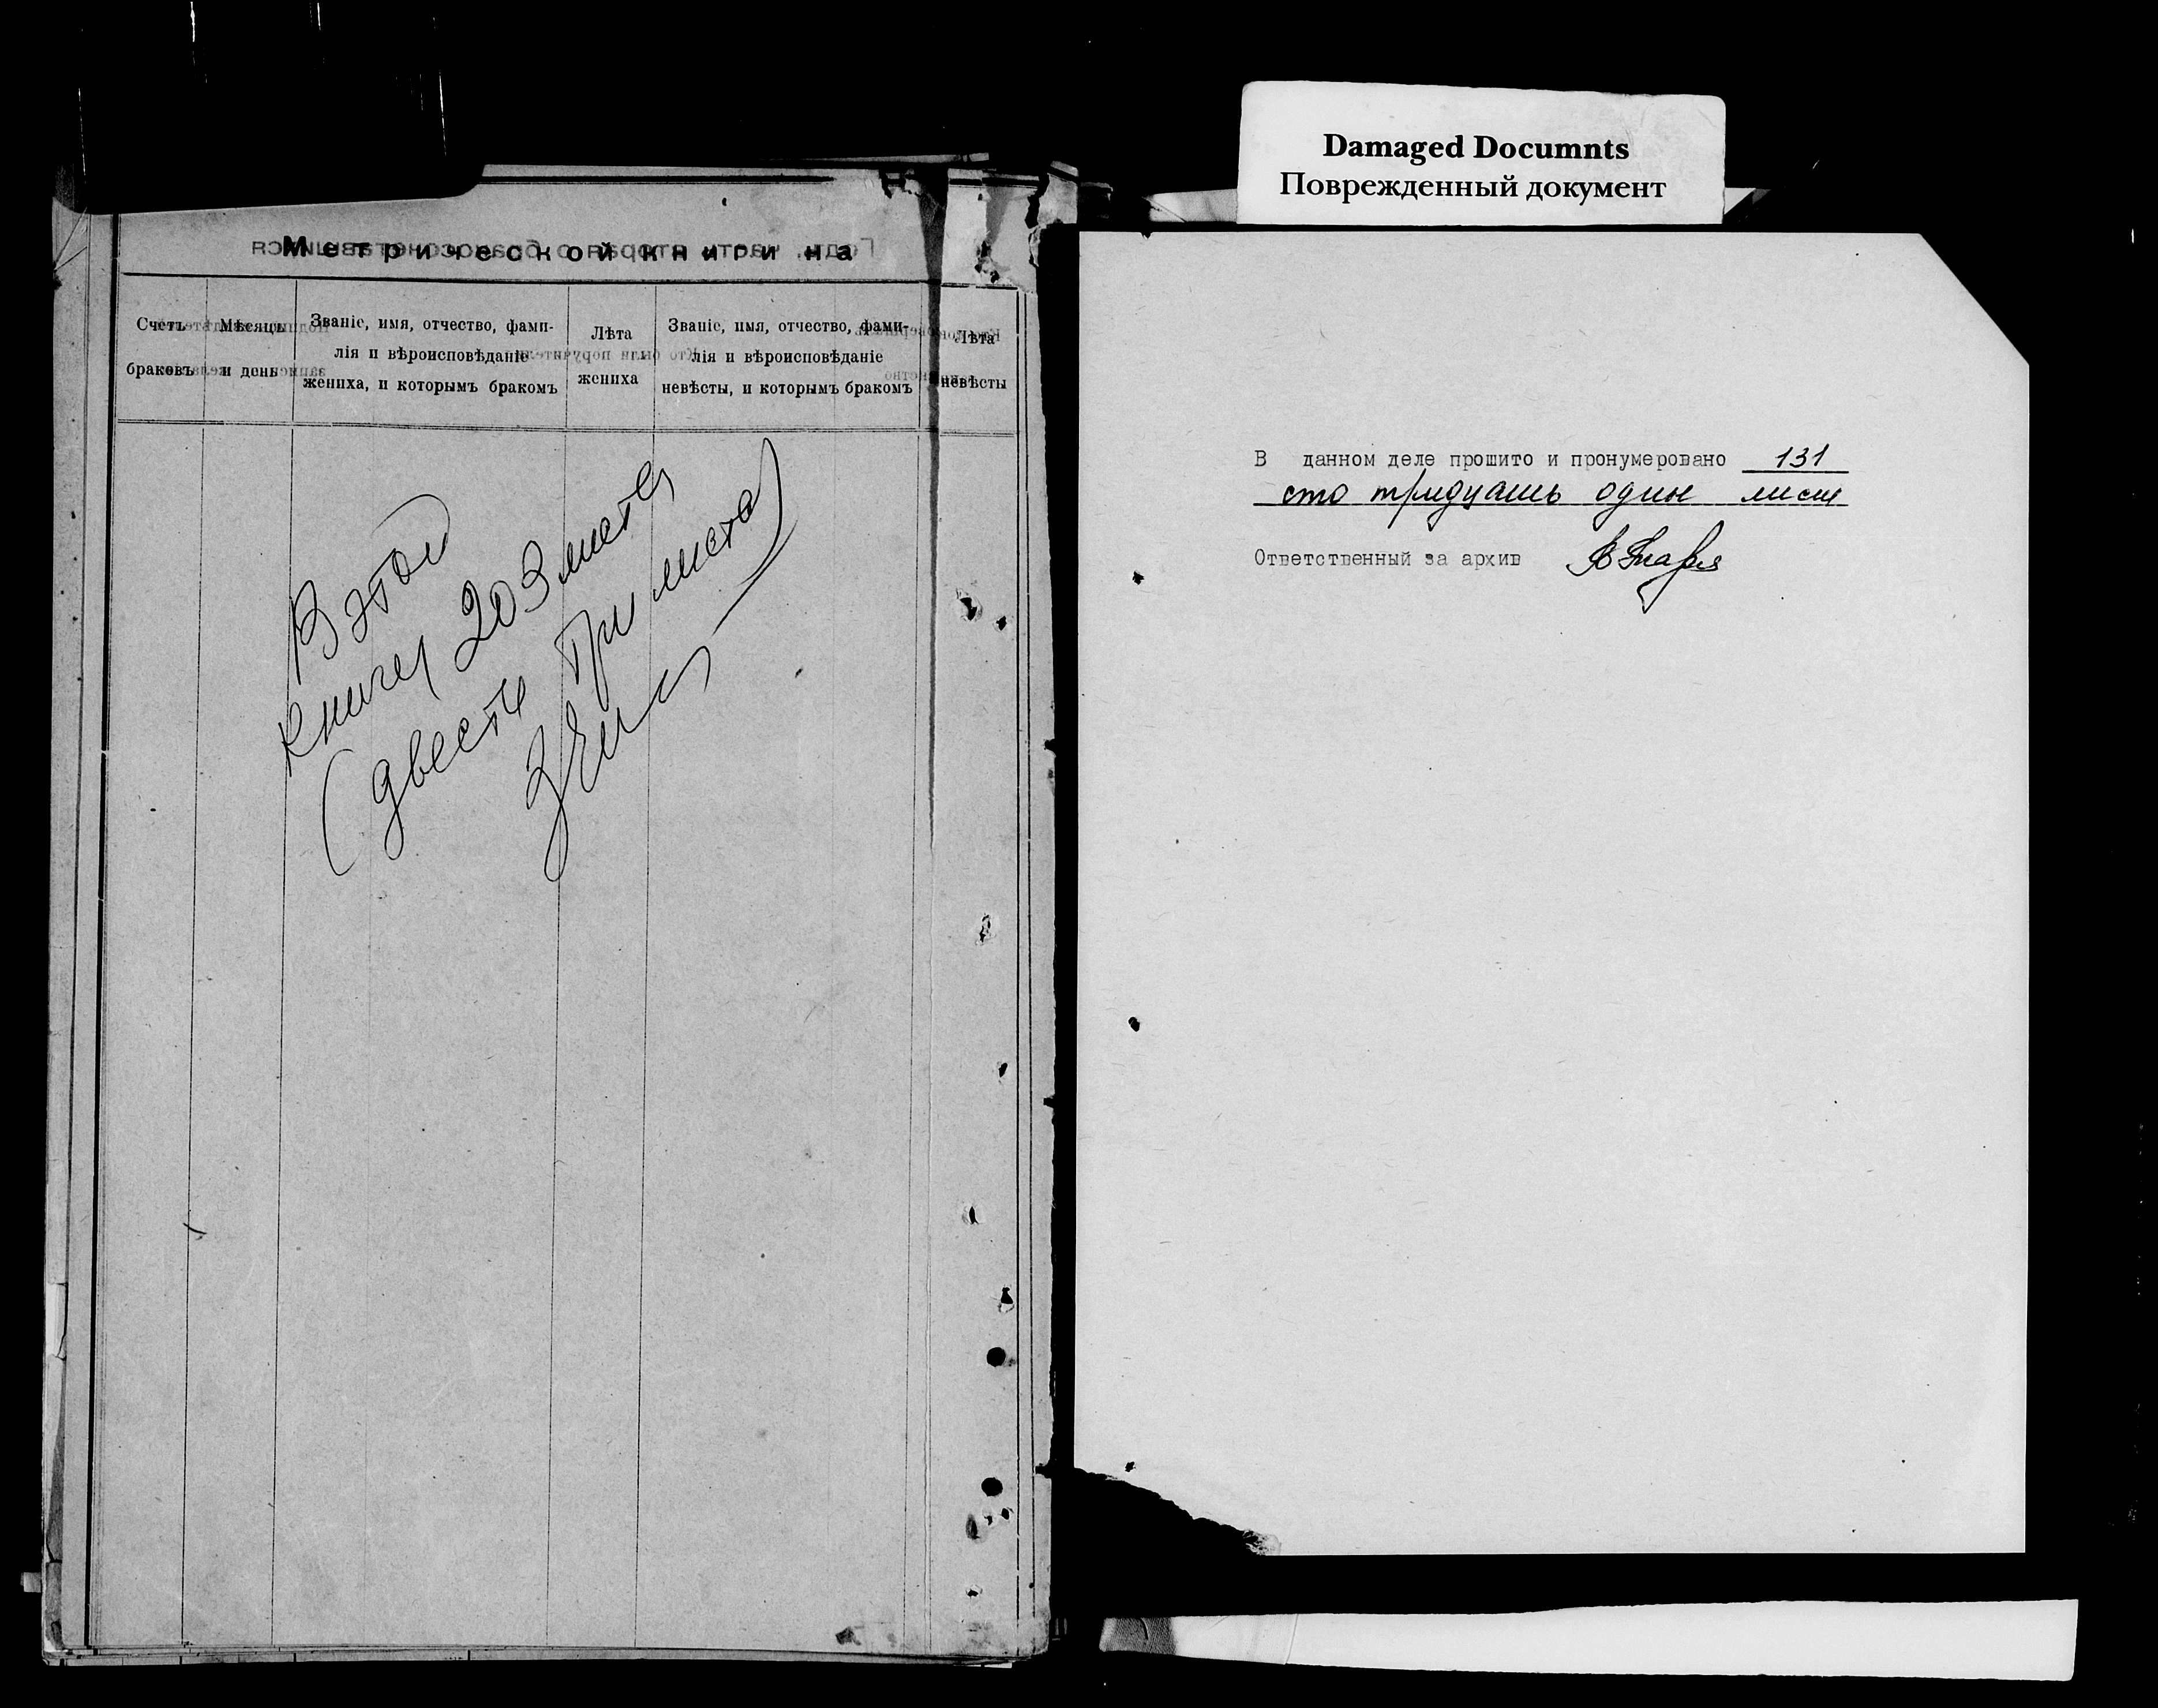 Damaged Documnts
Поврежденный документ
Метрической книги на
Счетъ
браковъ
Мѣсяцъ
и день
Званіе, имя, отчество, фами-
лія и вѣроисповѣданіе
жениха, и которымъ бракомъ
Лѣта
жениха
Званіе, имя, отчество, фами-
лія и вѣроисповѣданіе
невѣсты, и которымъ бракомъ
Лѣта
невѣсты
В этой
книге 203 листа
(двести три листа)
В данном деле прошито и пронумеровано 131
сто тридцать один лист
Ответственный за архив